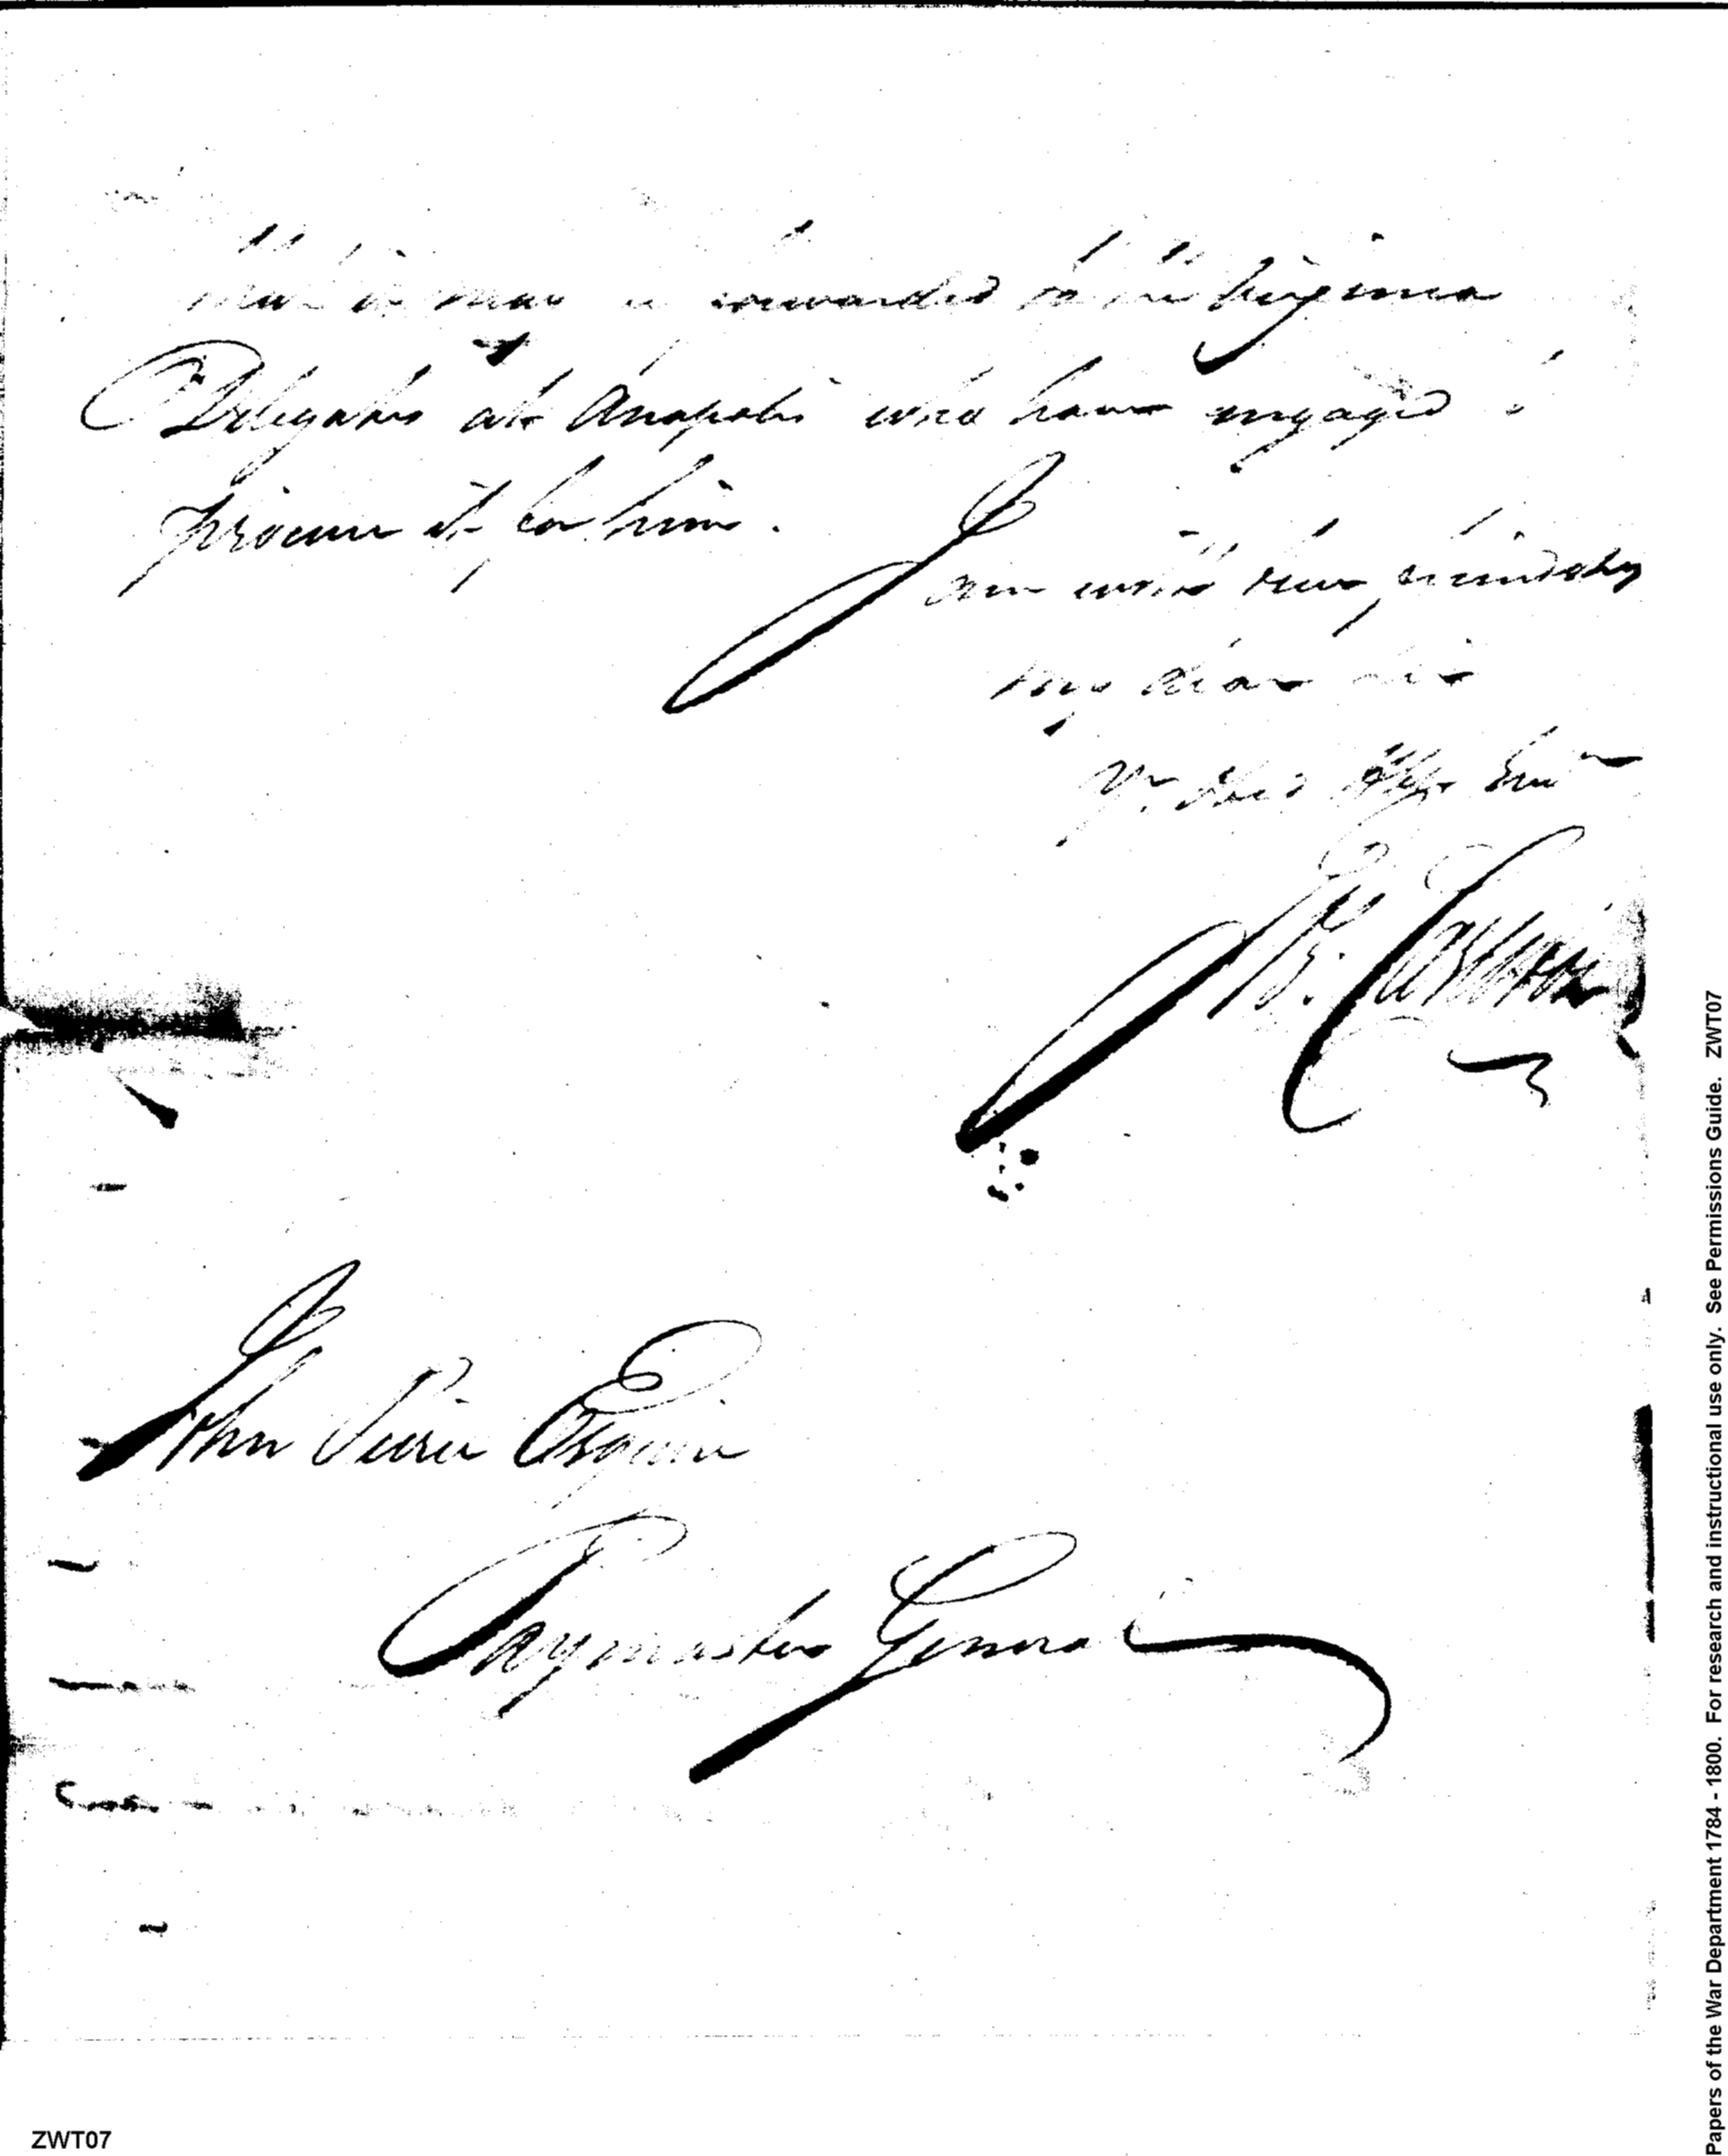 that it may be forwarded to the Virginia
Delegates at Anapolis who have engaged
procure it for him.
I am with true friendship
my dear sir
Yr Obed Hble Serv
John Pierce Esquire
Paymaster General
ZWT07
Papers of the War Department 1784 - 1800. For research and instructional use only. See Permissions Guide. ZWT07